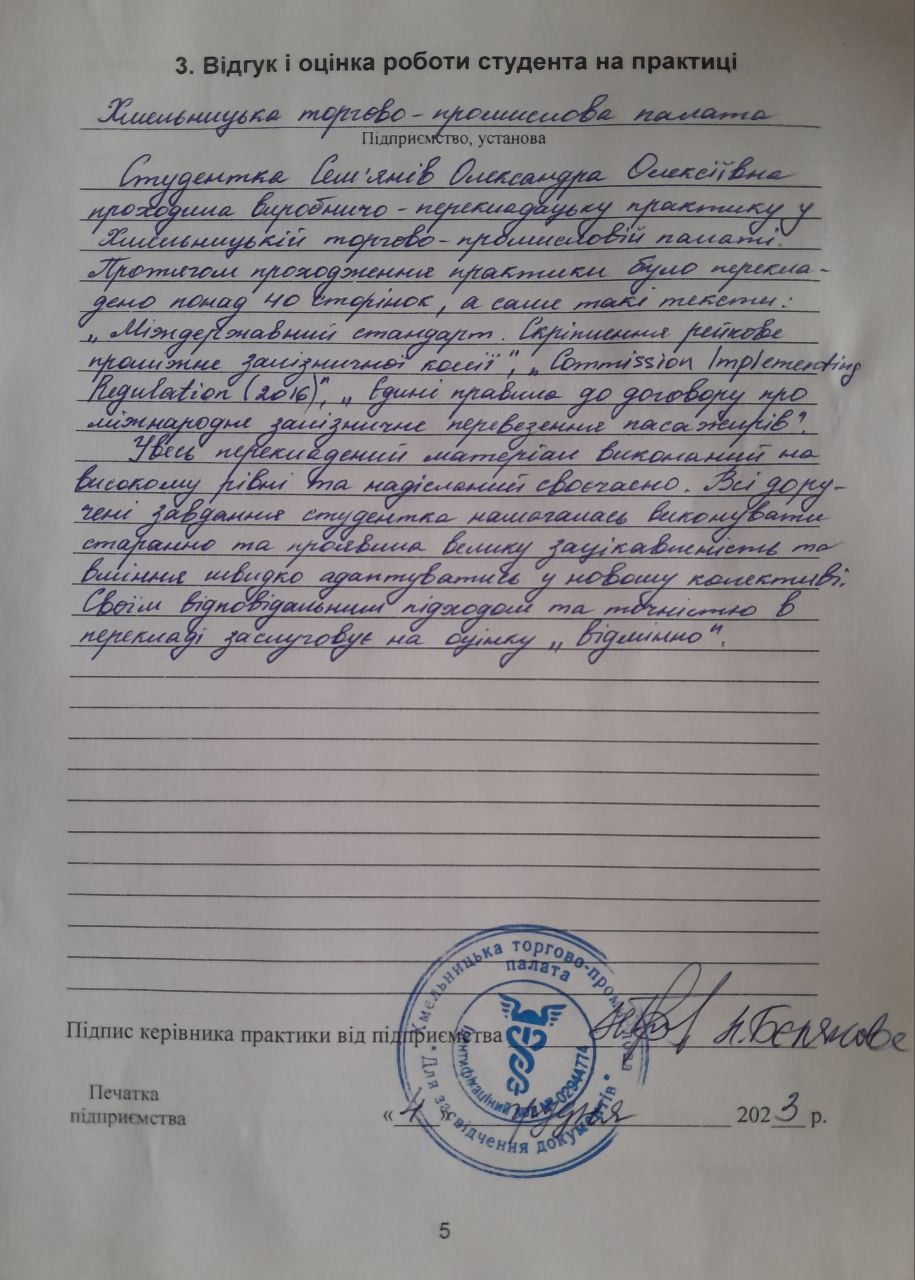 3. Відгук і оцінка роботи студента на практиці
Хмельницька торгово-промислова палата
Підприємство, установа
Студентка Сем'янів Олександра Олексіївна
проходила виробничо-перекладацьку практику у
Хмельницькій торгово-промисловій палаті.
Протягом проходження практики було перекла-
дено понад 40 сторінок, а саме такі тексти:
„Міждержавний стандарт. Скріплення рейкове
проміжне залізничної колії", „Commission Implementing
Regulation (2016)", „Єдині правила до договору про
міжнародне залізничне перевезення пасажирів".
Увесь перекладений матеріал виконаний на
високому рівні та надісланий своєчасно. Всі дору-
чені завдання студентка намагалась виконувати
старанно та проявила велику зацікавленість та
вміння швидко адаптуватись у новому колективі.
Своїм відповідальним підходом та точністю в
перекладі заслуговує на оцінку „відмінно".
Хмельницька торгово-промислова
палата
Ідентифікаційний код 02944774
• Для засвідчення документів •
Підпис керівника практики від підприємства
Печатка
підприємства
« 4 » грудня 2023 р.
5